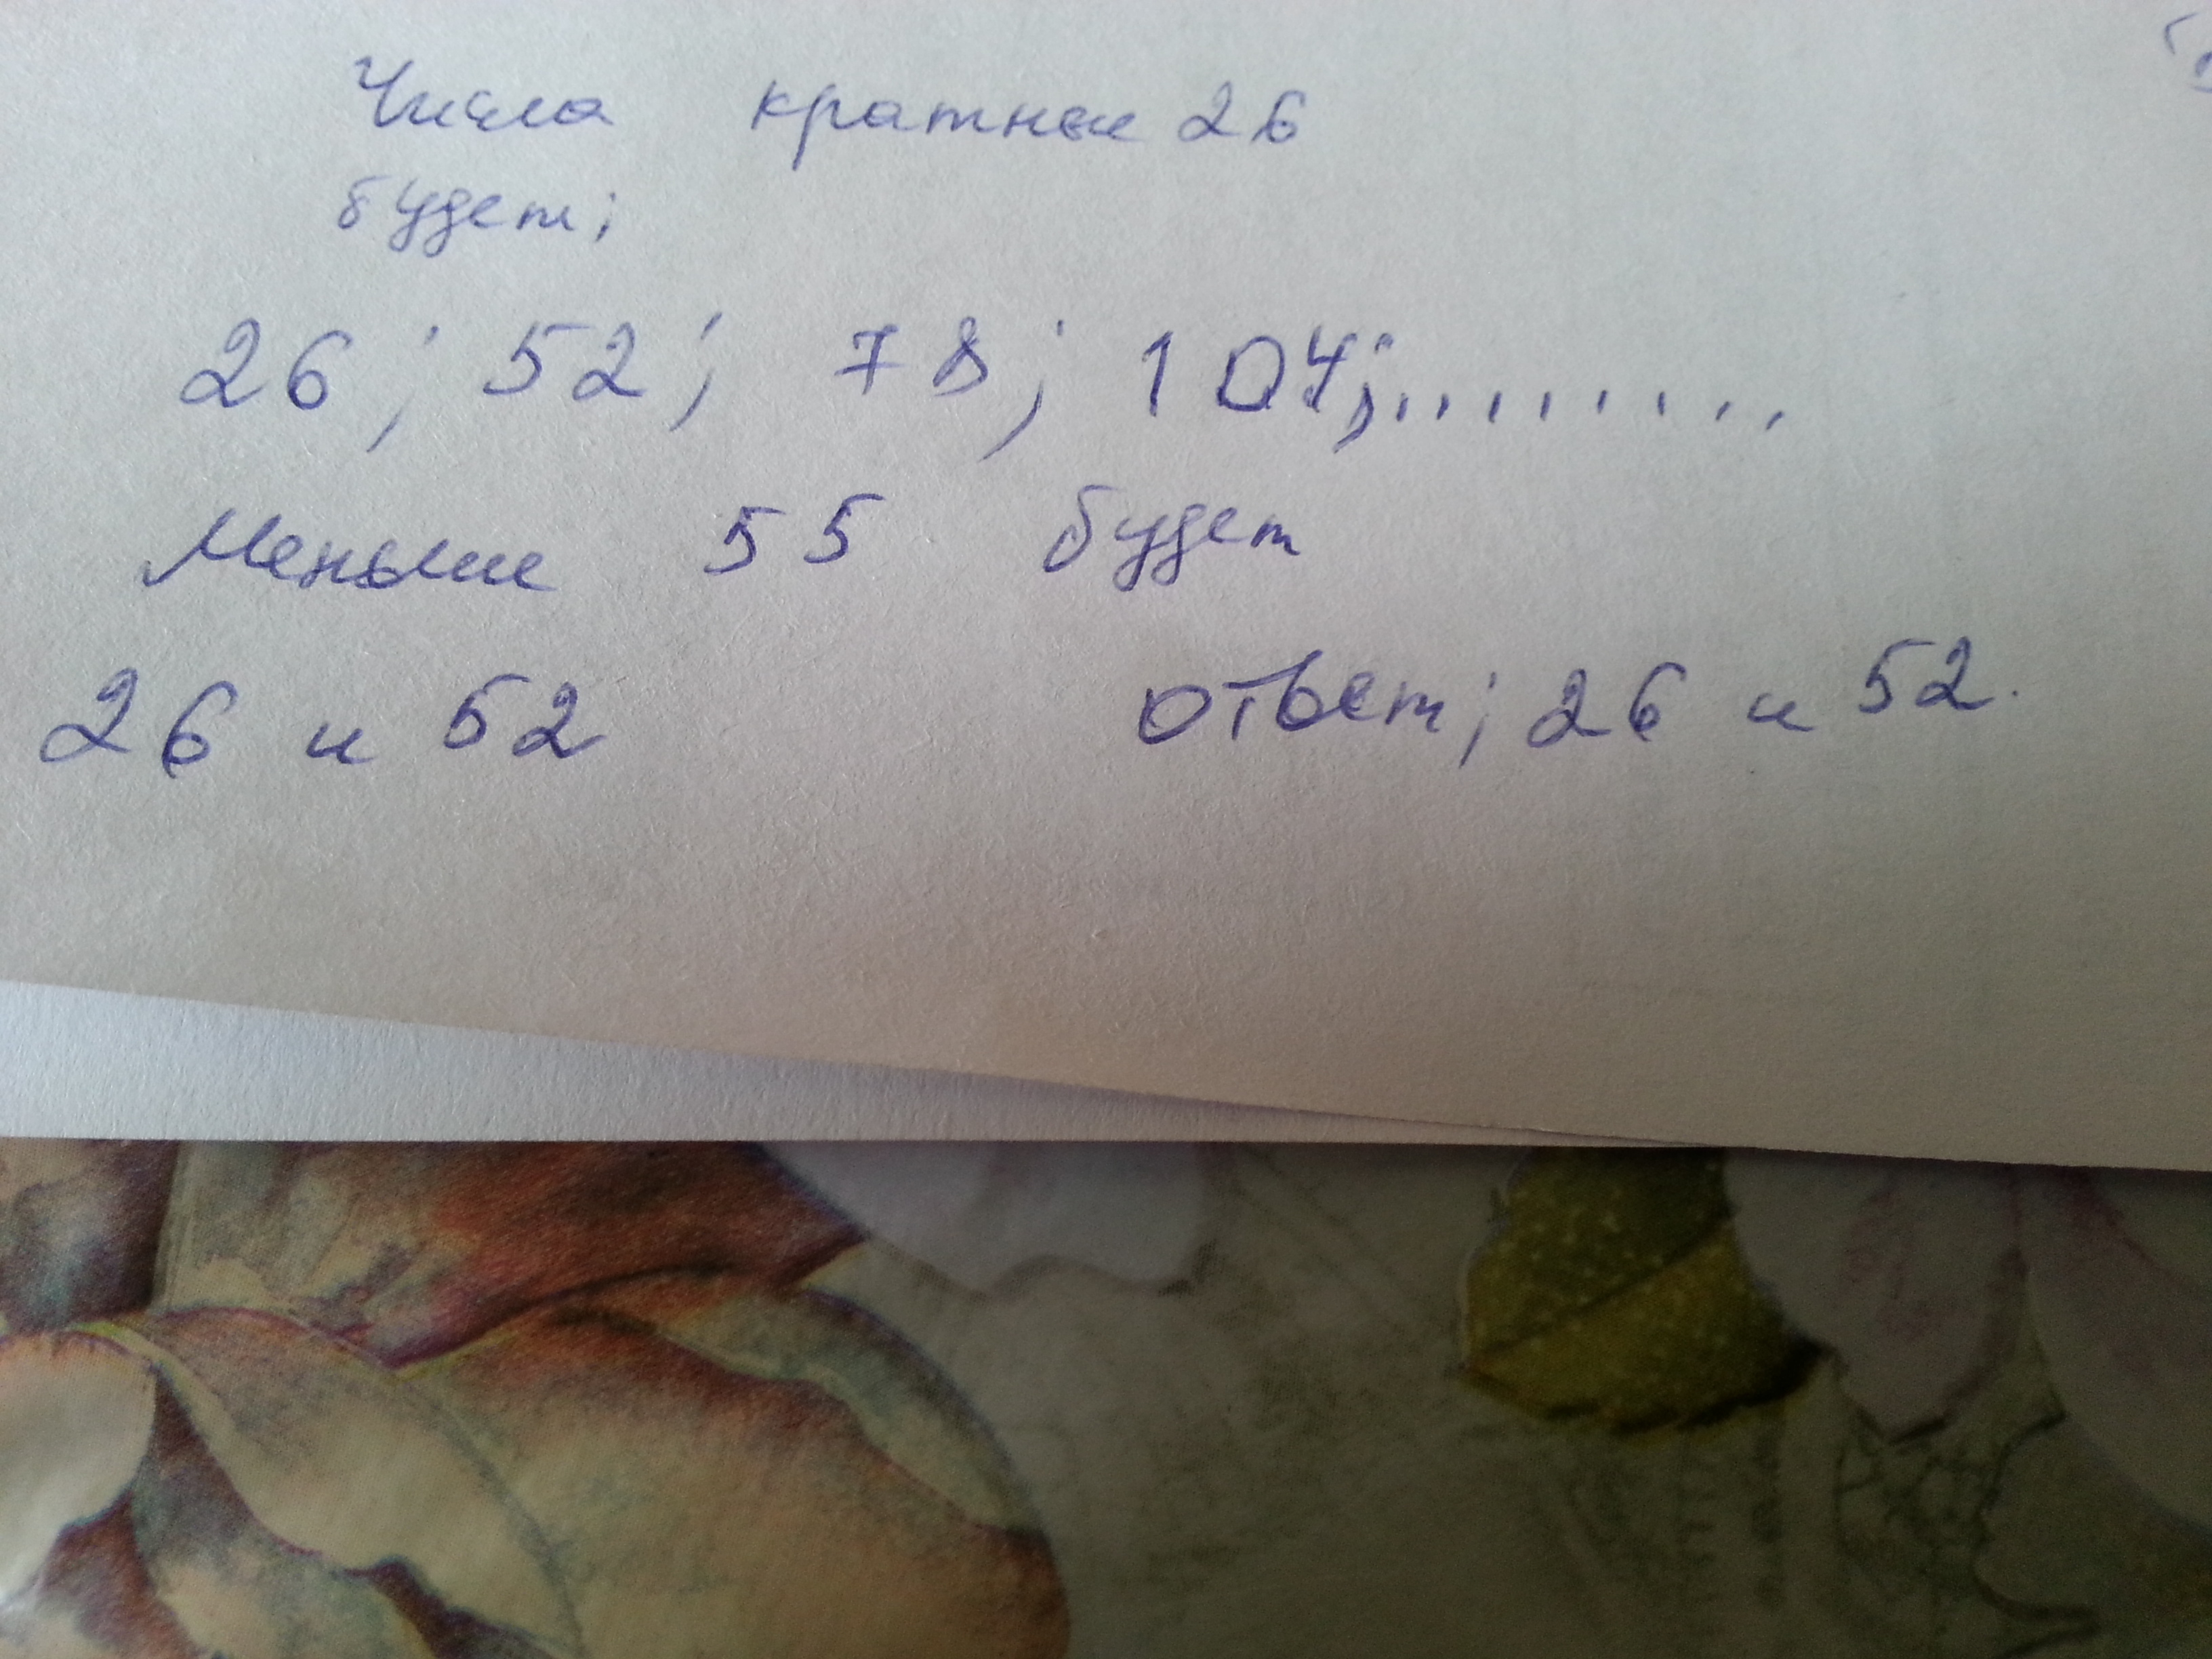 Числа кратные 26
будет;
26; 52; 78; 104;.........
Меньше 55 будет
26 и 52
Ответ; 26 и 52.